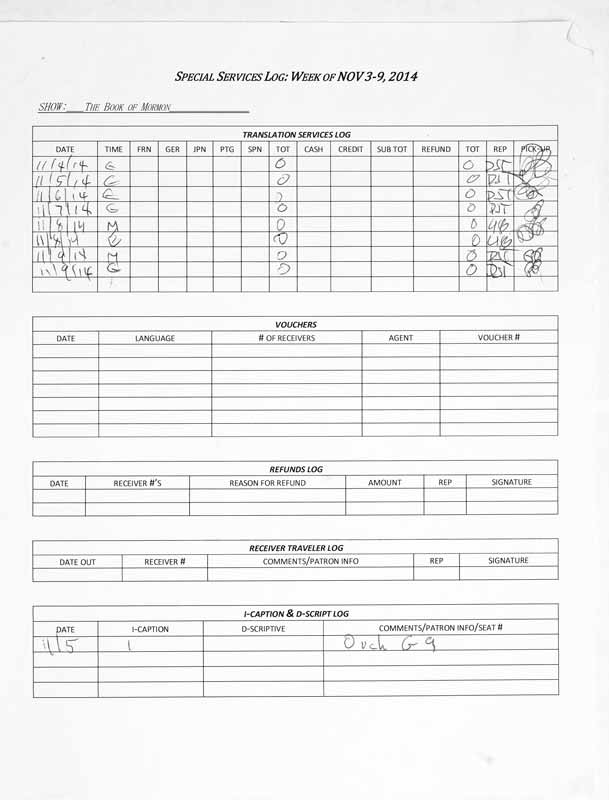 SPECIAL SERVICES LOG: WEEK OF NOV 3-9, 2014
SHOW: THE BOOK OF MORMON
TRANSLATION SERVICES LOG
DATE TIME FRN GER JPN PTG SPN TOT CASH CREDIT SUB TOT REFUND TOT REP PICK-UP
11/4/14 E 0 0 DST
11/5/14 E 0 0 DST
11/6/14 E 0 0 DST
11/7/14 E 0 0 DST
11/8/14 M 0 0
11/8/14 E 0 0
11/9/14 M 0 0 DST
11/9/14 E 0 0 DST
VOUCHERS
DATE LANGUAGE # OF RECEIVERS AGENT VOUCHER #
REFUNDS LOG
DATE RECEIVER #'S REASON FOR REFUND AMOUNT REP SIGNATURE
RECEIVER TRAVELER LOG
DATE OUT RECEIVER # COMMENTS/PATRON INFO REP SIGNATURE
I-CAPTION & D-SCRIPT LOG
DATE I-CAPTION D-SCRIPTIVE COMMENTS/PATRON INFO/SEAT #
11/5 1 Orch G 9